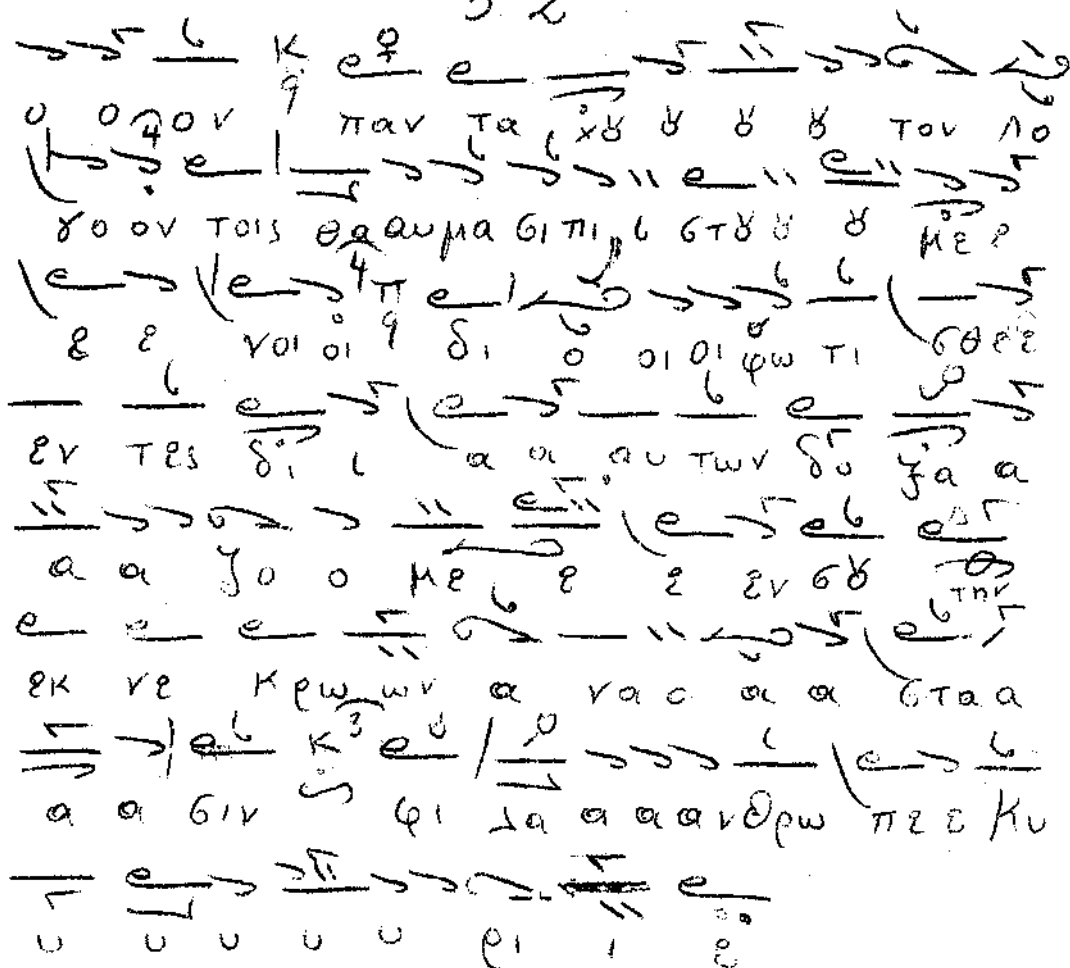 ο ο ον παν τα χȣ ȣ ȣ ȣ τον λο
γο ον τοις θα αυμα σι πι ι στȣ ȣ ȣ με ε
ε ε νοι οι δι ο οι οι φω τι σθε ε
εν τες δι ι α α αυ των δο ξα α
α α ζο ο με ε ε εν σȣ την
εκ νε κρω ων α νασ α α στα α
α α σιν φι λα α α ανθρω πε ε Κυ
υ υ υ υ υ ρι ι ε